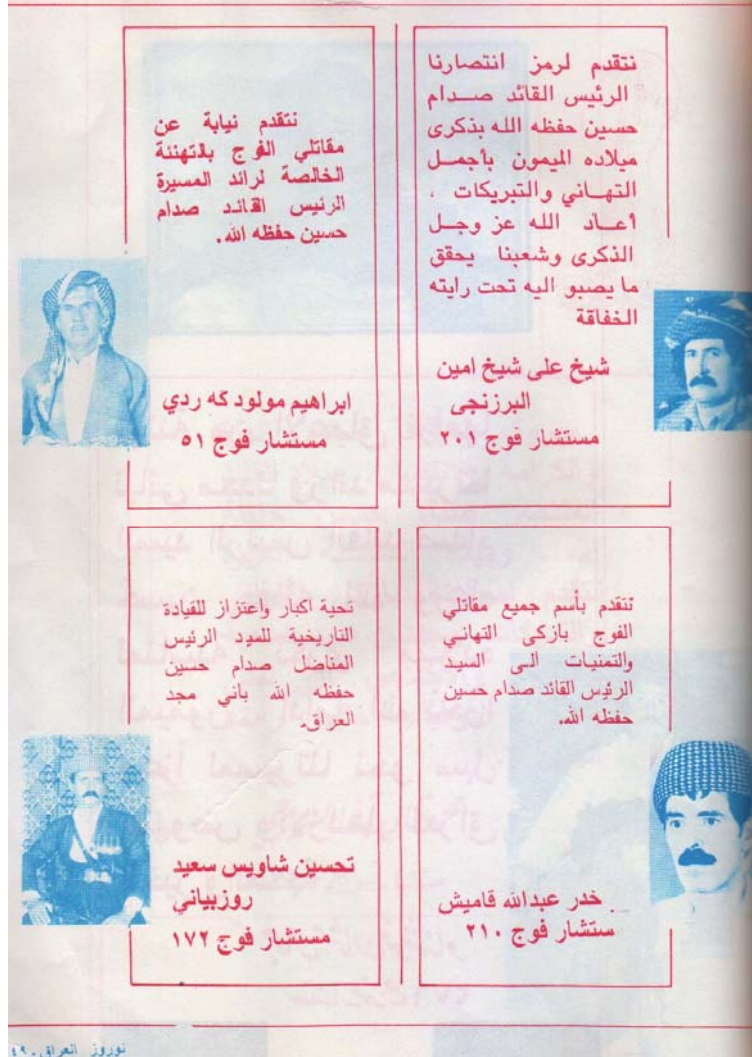 نتقدم لرمز انتصارنا
الرئيس القائد صدام
حسين حفظه الله بذكرى
ميلاده الميمون بأجمل
التهاني والتبريكات ،
أعاد الله عز وجل
الذكرى وشعبنا يحقق
ما يصبو اليه تحت رايته
الخفاقة
شيخ على شيخ امين
البرزنجى
مستشار فوج ٢٠١
نتقدم نيابة عن
مقاتلي الفوج بالتهنئة
الخالصة لرائد المسيرة
الرئيس القائد صدام
حسين حفظه الله.
ابراهيم مولود كه ردي
مستشار فوج ٥١
نتقدم بأسم جميع مقاتلي
الفوج بازكى التهاني
والتمنيات الى السيد
الرئيس القائد صدام حسين
حفظه الله.
خدر عبدالله قاميش
ستشار فوج ٢١٠
تحية اكبار واعتزاز للقيادة
التاريخية للسيد الرئيس
المناضل صدام حسين
حفظه الله باني مجد
العراق.
تحسين شاويس سعيد
روزبياني
مستشار فوج ١٧٢
نوروز العراق - ٤٩